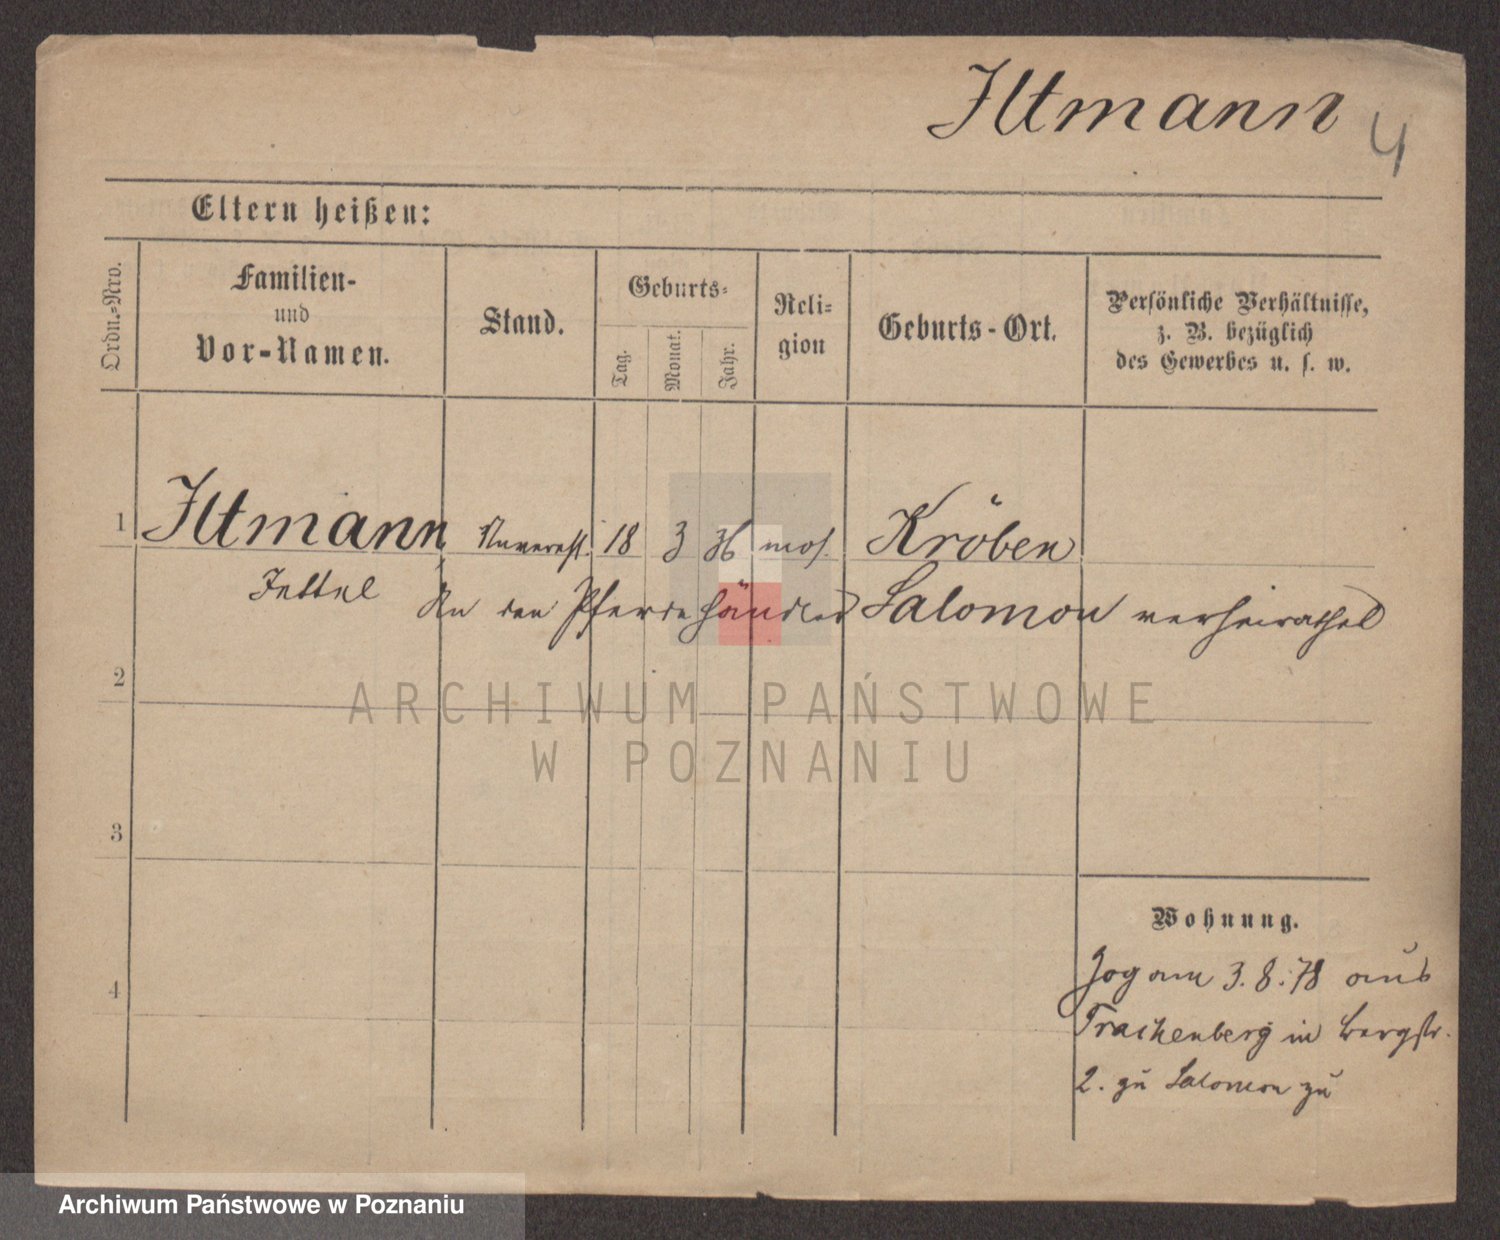 Iltmann 4
Eltern heißen:
Ordn.-Nro.
Familien-
und
Vor-Namen.
Stand.
Geburts-
Tag.
Monat.
Jahr.
Reli-
gion
Geburts-Ort.
Persönliche Verhältnisse,
z. B. bezüglich
des Gewerbes u. s. w.
1 Iltmann Unvereh. 18 3 36 mos. Kröben
Jettel An den Pferdehändler Salomon verheirathet
2
ARCHIWUM PAŃSTWOWE
W POZNANIU
3
Wohnung.
4
Zog am 3.8.78 aus
Trachenberg in Bergstr.
2. zu Salomon zu
Archiwum Państwowe w Poznaniu